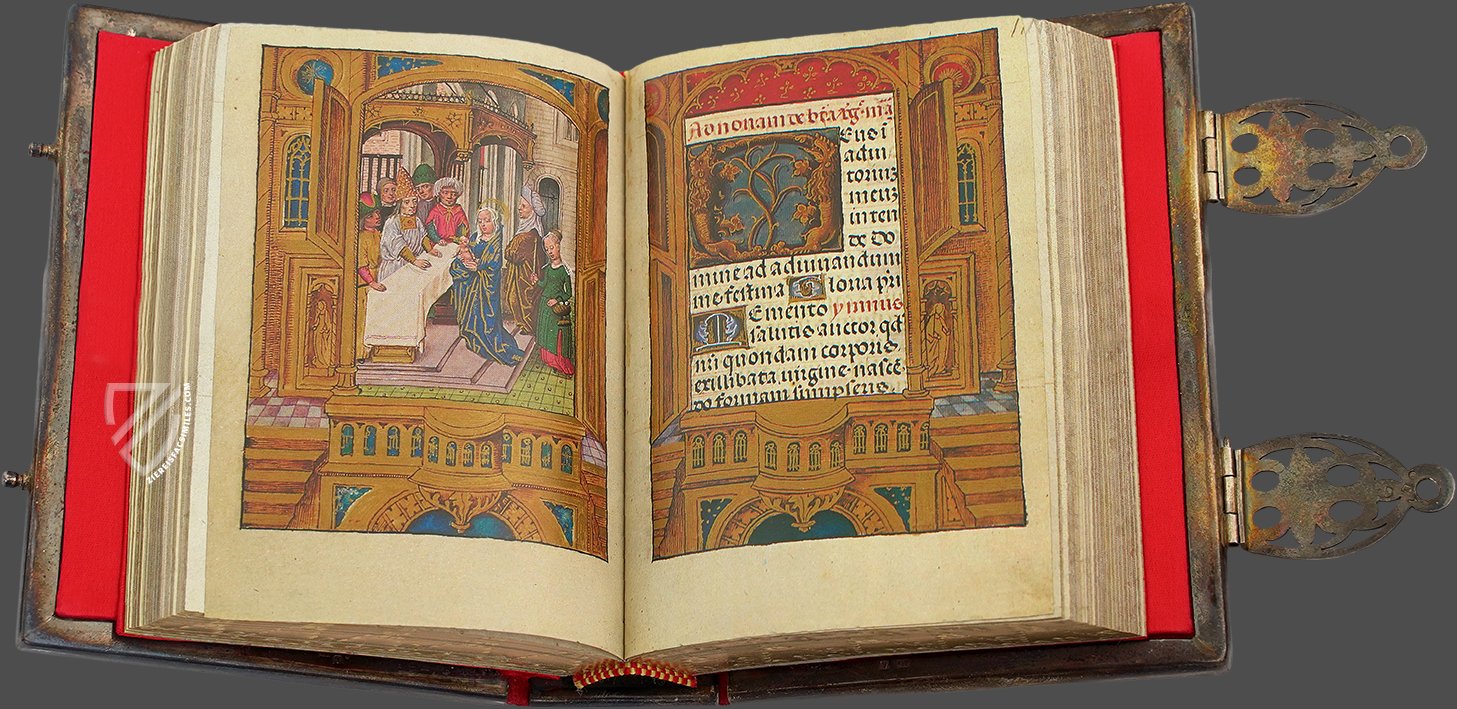 Ad nonam de bt̄a v̄g̃. mīa
Deus ī
adiu
toriuȝ
meuȝ
inten
de do
mine ad adiuuandum
me festina Gloria pr̄i
Memento ymnus
salutis auctor qd̄
nr̄i quondam corporis
ex illibata uirgine nascē
do formam sumpseris.
ZIEREISFACSIMILES.COM